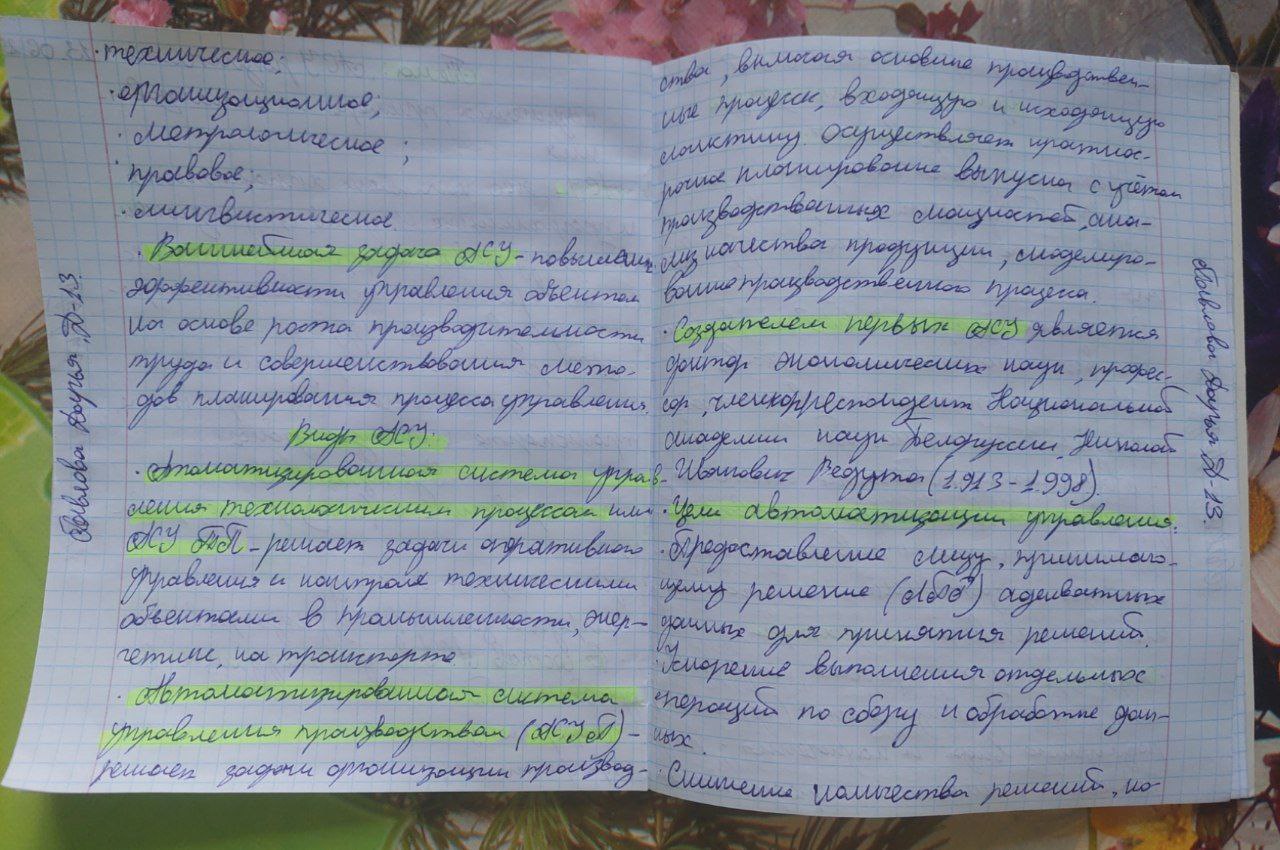 · техническое;
· организационное;
· метрологическое;
· правовое;
· лингвистическое.
· Важнейшая задача АСУ - повышение
эффективности управления объектом
на основе роста производительности
труда и совершенствования мето-
дов планирования процесса управления.
Виды АСУ:
· Автоматизированная система управ-
ления технологическим процессом или
АСУ ТП - решает задачи оперативного
управления и контроля техническими
объектами в промышленности, энер-
гетике, на транспорте
· Автоматизированная система
управления производством (АСУ П) -
решает задачи организации производ-
ства, включая основные производствен-
ные процессы, входящую и исходящую
логистику. Осуществляет краткос-
рочное планирование выпуска с учётом
производственных мощностей, ана-
лиз качества продукции, моделиро-
вание производственного процесса.
· Создателем первых АСУ является
доктор экономических наук, профес-
сор, член-корреспондент Национальной
академии наук Белоруссии, Николай
Иванович Ведута (1913-1998).
· Цели автоматизации управления:
· Предоставление лицу, принимаю-
щему решение (ЛПР) адекватных
данных для принятия решений.
· Ускорение выполнения отдельных
операций по сбору и обработке дан-
ных.
· Снижение количества решений, ко-
Павлова Дарья Д-13.
Павлова Дарья Д-13.